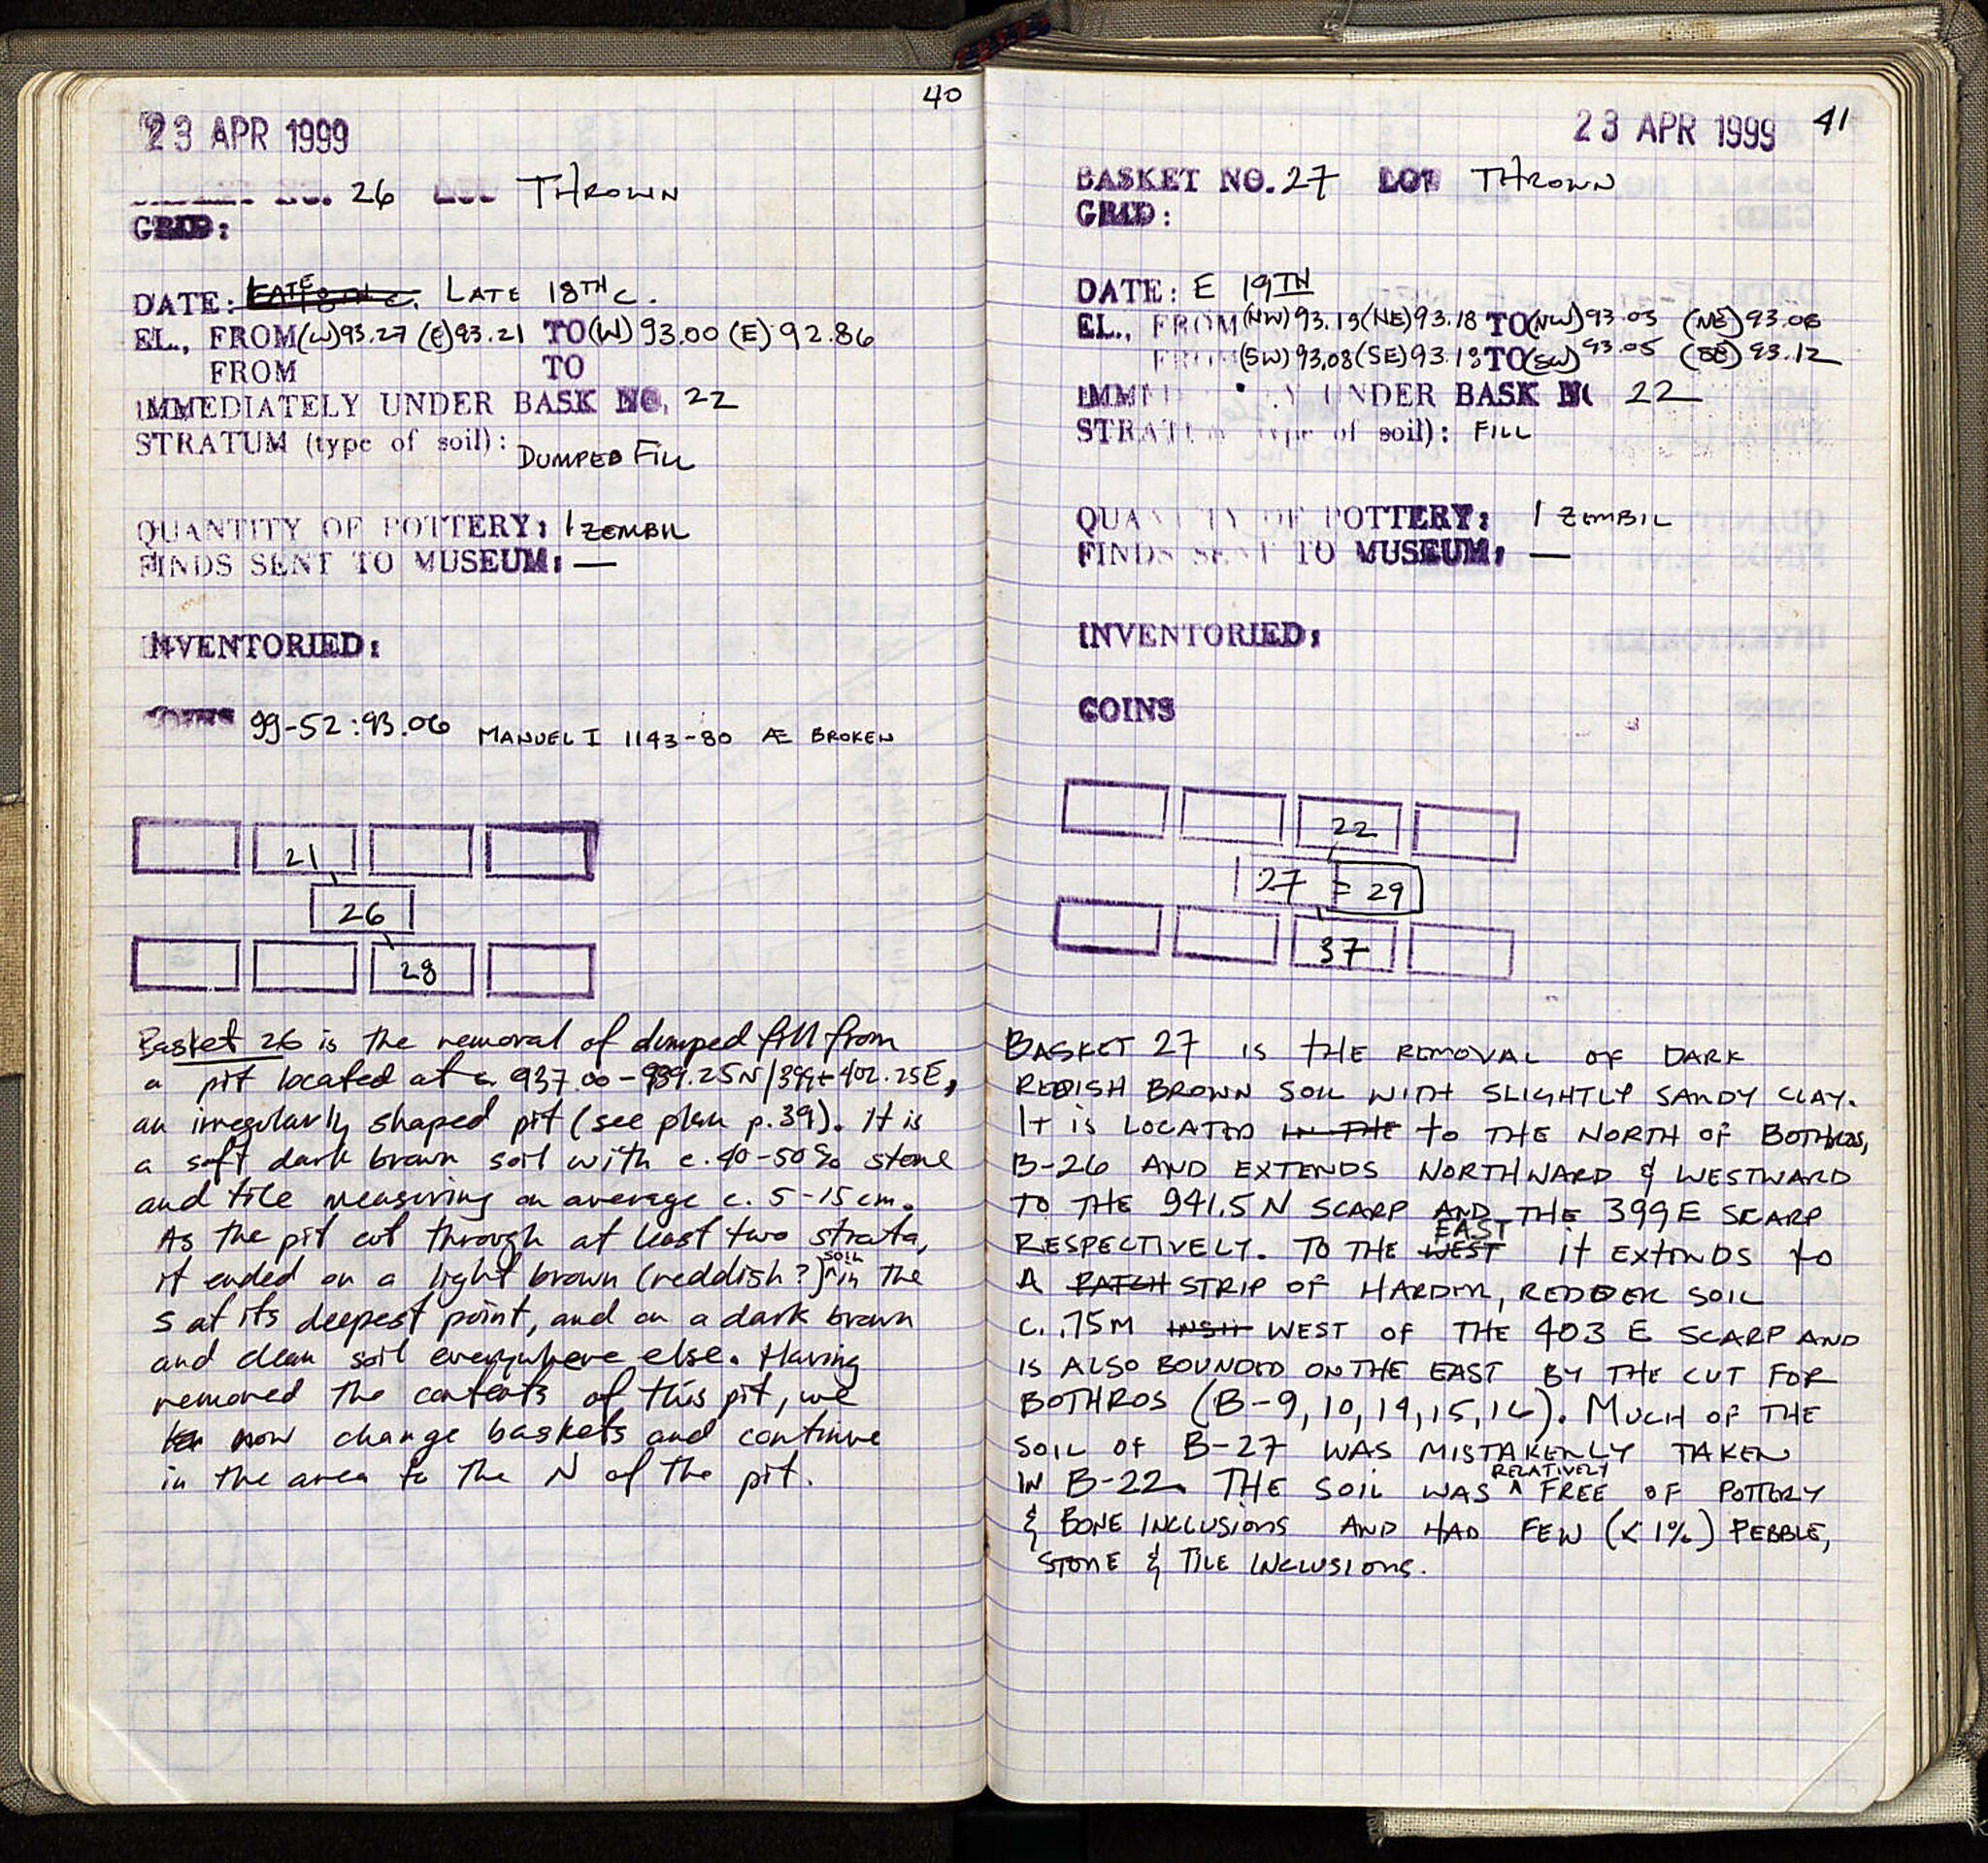 40
23 APR 1999
26 LOT THROWN
GRID:
DATE: LATE 18TH C. LATE 18TH C.
EL., FROM (W)93.27 (E)93.21 TO (W)93.00 (E)92.86
FROM TO
IMMEDIATELY UNDER BASK NO. 22
STRATUM (type of soil): DUMPED FILL
QUANTITY OF POTTERY: 1 ZEMBIL
FINDS SENT TO MUSEUM: —
INVENTORIED:
COINS 99-52:93.06 MANUEL I 1143-80 Æ BROKEN
21
26
28
Basket 26 is the removal of dumped fill from
a pit located at c. 937.00-939.25N/399-402.25E,
an irregularly shaped pit (see plan p.39). It is
a soft dark brown soil with c.40-50% stone
and tile measuring on average c. 5-15cm.
As the pit cut through at least two strata,
it ended on a light brown (reddish?) soil in the
S at its deepest point, and on a dark brown
and clean soil everywhere else. Having
removed the contents of this pit, we
now change baskets and continue
in the area to the N of the pit.
41
23 APR 1999
BASKET NO. 27 LOT THROWN
GRID:
DATE: E 19TH
EL., FROM (NW)93.13(NE)93.18 TO (NW)93.05 (NE)93.06
FROM (SW)93.08(SE)93.13 TO (SW)93.05 (SE)93.12
IMMEDIATELY UNDER BASK NO 22
STRATUM (type of soil): FILL
QUANTITY OF POTTERY: 1 ZEMBIL
FINDS SENT TO MUSEUM: —
INVENTORIED:
COINS
22
27 = 29
37
BASKET 27 IS THE REMOVAL OF DARK
REDISH BROWN SOIL WITH SLIGHTLY SANDY CLAY.
It is LOCATED IN THE to THE NORTH OF BOTHROS,
B-26 AND EXTENDS NORTHWARD & WESTWARD
TO THE 941.5 N SCARP AND THE 399 E SCARP
RESPECTIVELY. TO THE WEST EAST it EXTENDS to
A PATCH STRIP OF HARDER, REDDER SOIL
C. .75M WEST OF THE 403 E SCARP AND
IS ALSO BOUNDED ON THE EAST BY THE CUT FOR
BOTHROS (B-9, 10, 14, 15, 16). MUCH OF THE
SOIL OF B-27 WAS MISTAKENLY TAKEN
IN B-22. THE SOIL WAS RELATIVELY FREE OF POTTERY
& BONE INCLUSIONS AND HAD FEW (<1%) PEBBLE,
STONE & TILE INCLUSIONS.